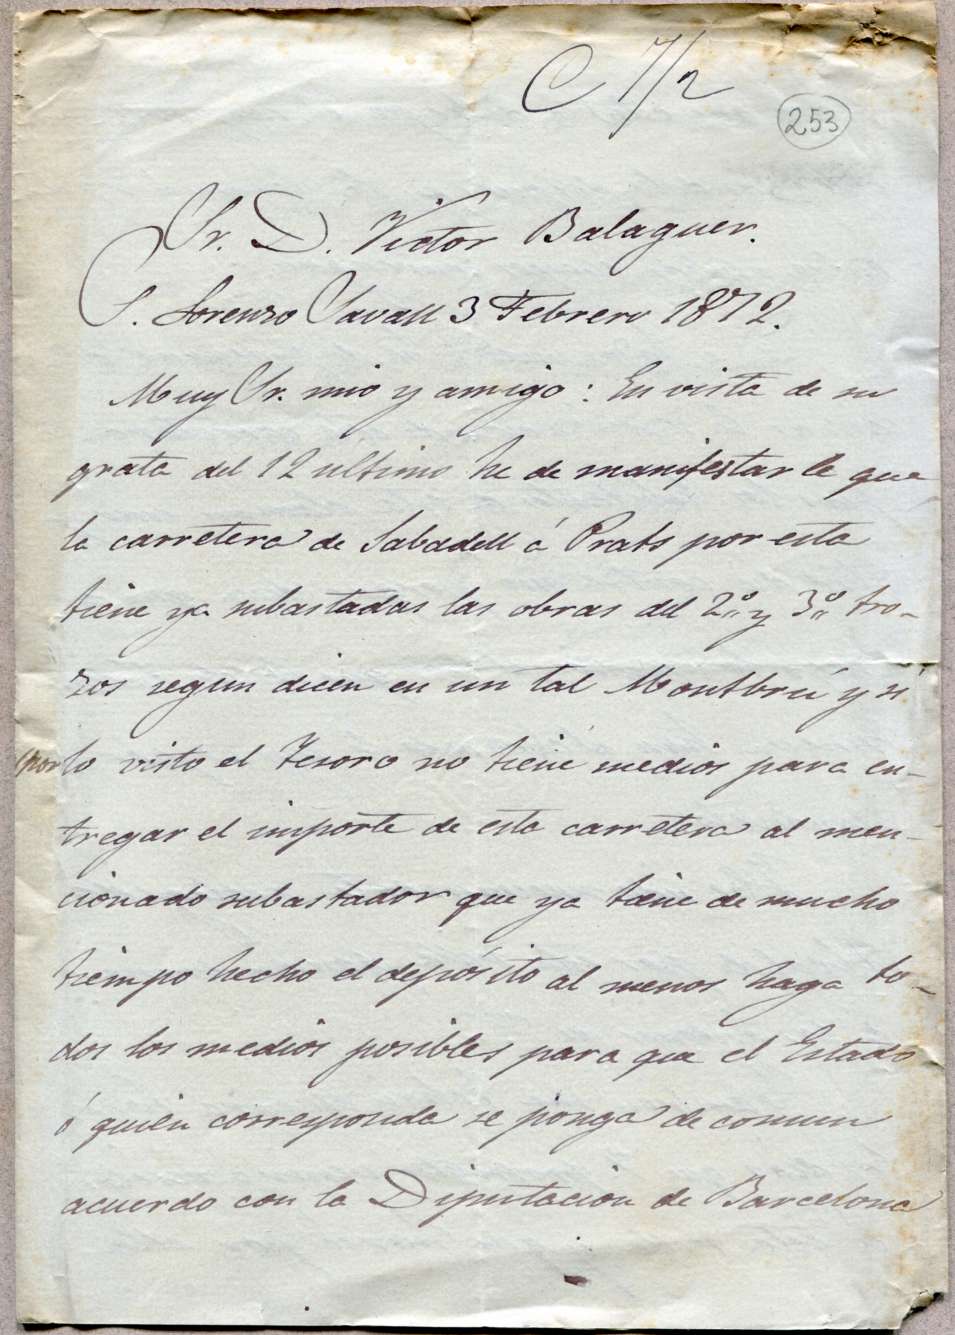 C 7/2
253
Sr. D. Victor Balaguer.
S. Lorenzo Savall 3 Febrero 1872.
Muy Sr. mio y amigo: En vista de su
grata del 12 último he de manifestarle que
la carretera de Sabadell á Prats por esta
tiene ya subastadas las obras del 2º y 3º tro-
zos segun dicen en un tal Montbrú y si
por lo visto el Tesoro no tiene medios para en-
tregar el importe de esta carretera al men-
cionado subastador que ya tiene de mucho
tiempo hecho el depósito al menos haga to-
dos los medios posibles para que el Estado
ó quien corresponda se ponga de comun
acuerdo con la Diputacion de Barcelona